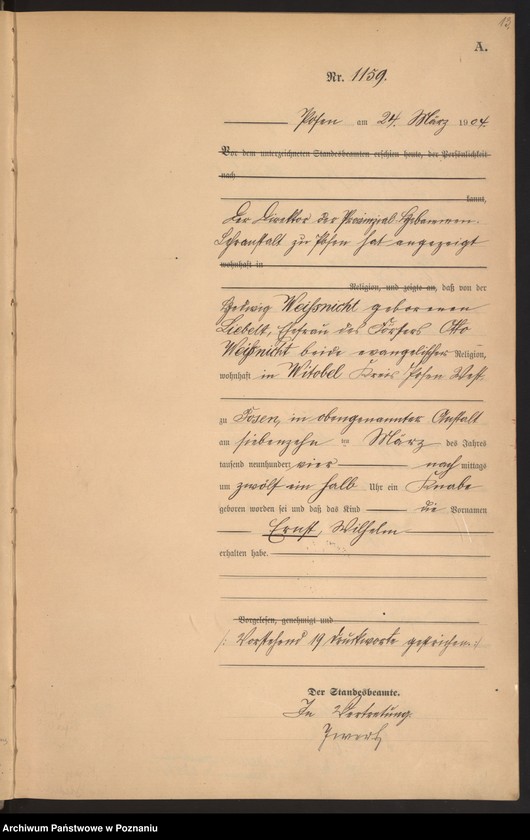 13
A.
Nr. 1159.
Posen am 24. März 1904.
Vor dem unterzeichneten Standesbeamten erschien heute, der Persönlichkeit
nach
kannt,
Der Direktor der Provinzial-Hebammen-
Lehranstalt zu Posen hat angezeigt
wohnhaft in
Religion, und zeigte an, daß von der
Hedwig Weißnicht geborenen
Liebelt, Ehefrau des Försters Otto
Weißnicht beide evangelischer Religion,
wohnhaft in Witobel Kreis Posen West
zu Posen, in obengenannter Anstalt
am siebenzehn ten März des Jahres
tausend neunhundert vier nach mittags
um zwölf ein halb Uhr ein Knabe
geboren worden sei und daß das Kind die Vornamen
Ernst, Wilhelm
erhalten habe.
Vorgelesen, genehmigt und
/: Vorstehend 19 Druckworte gestrichen :/
Der Standesbeamte.
In Vertretung.
Archiwum Państwowe w Poznaniu